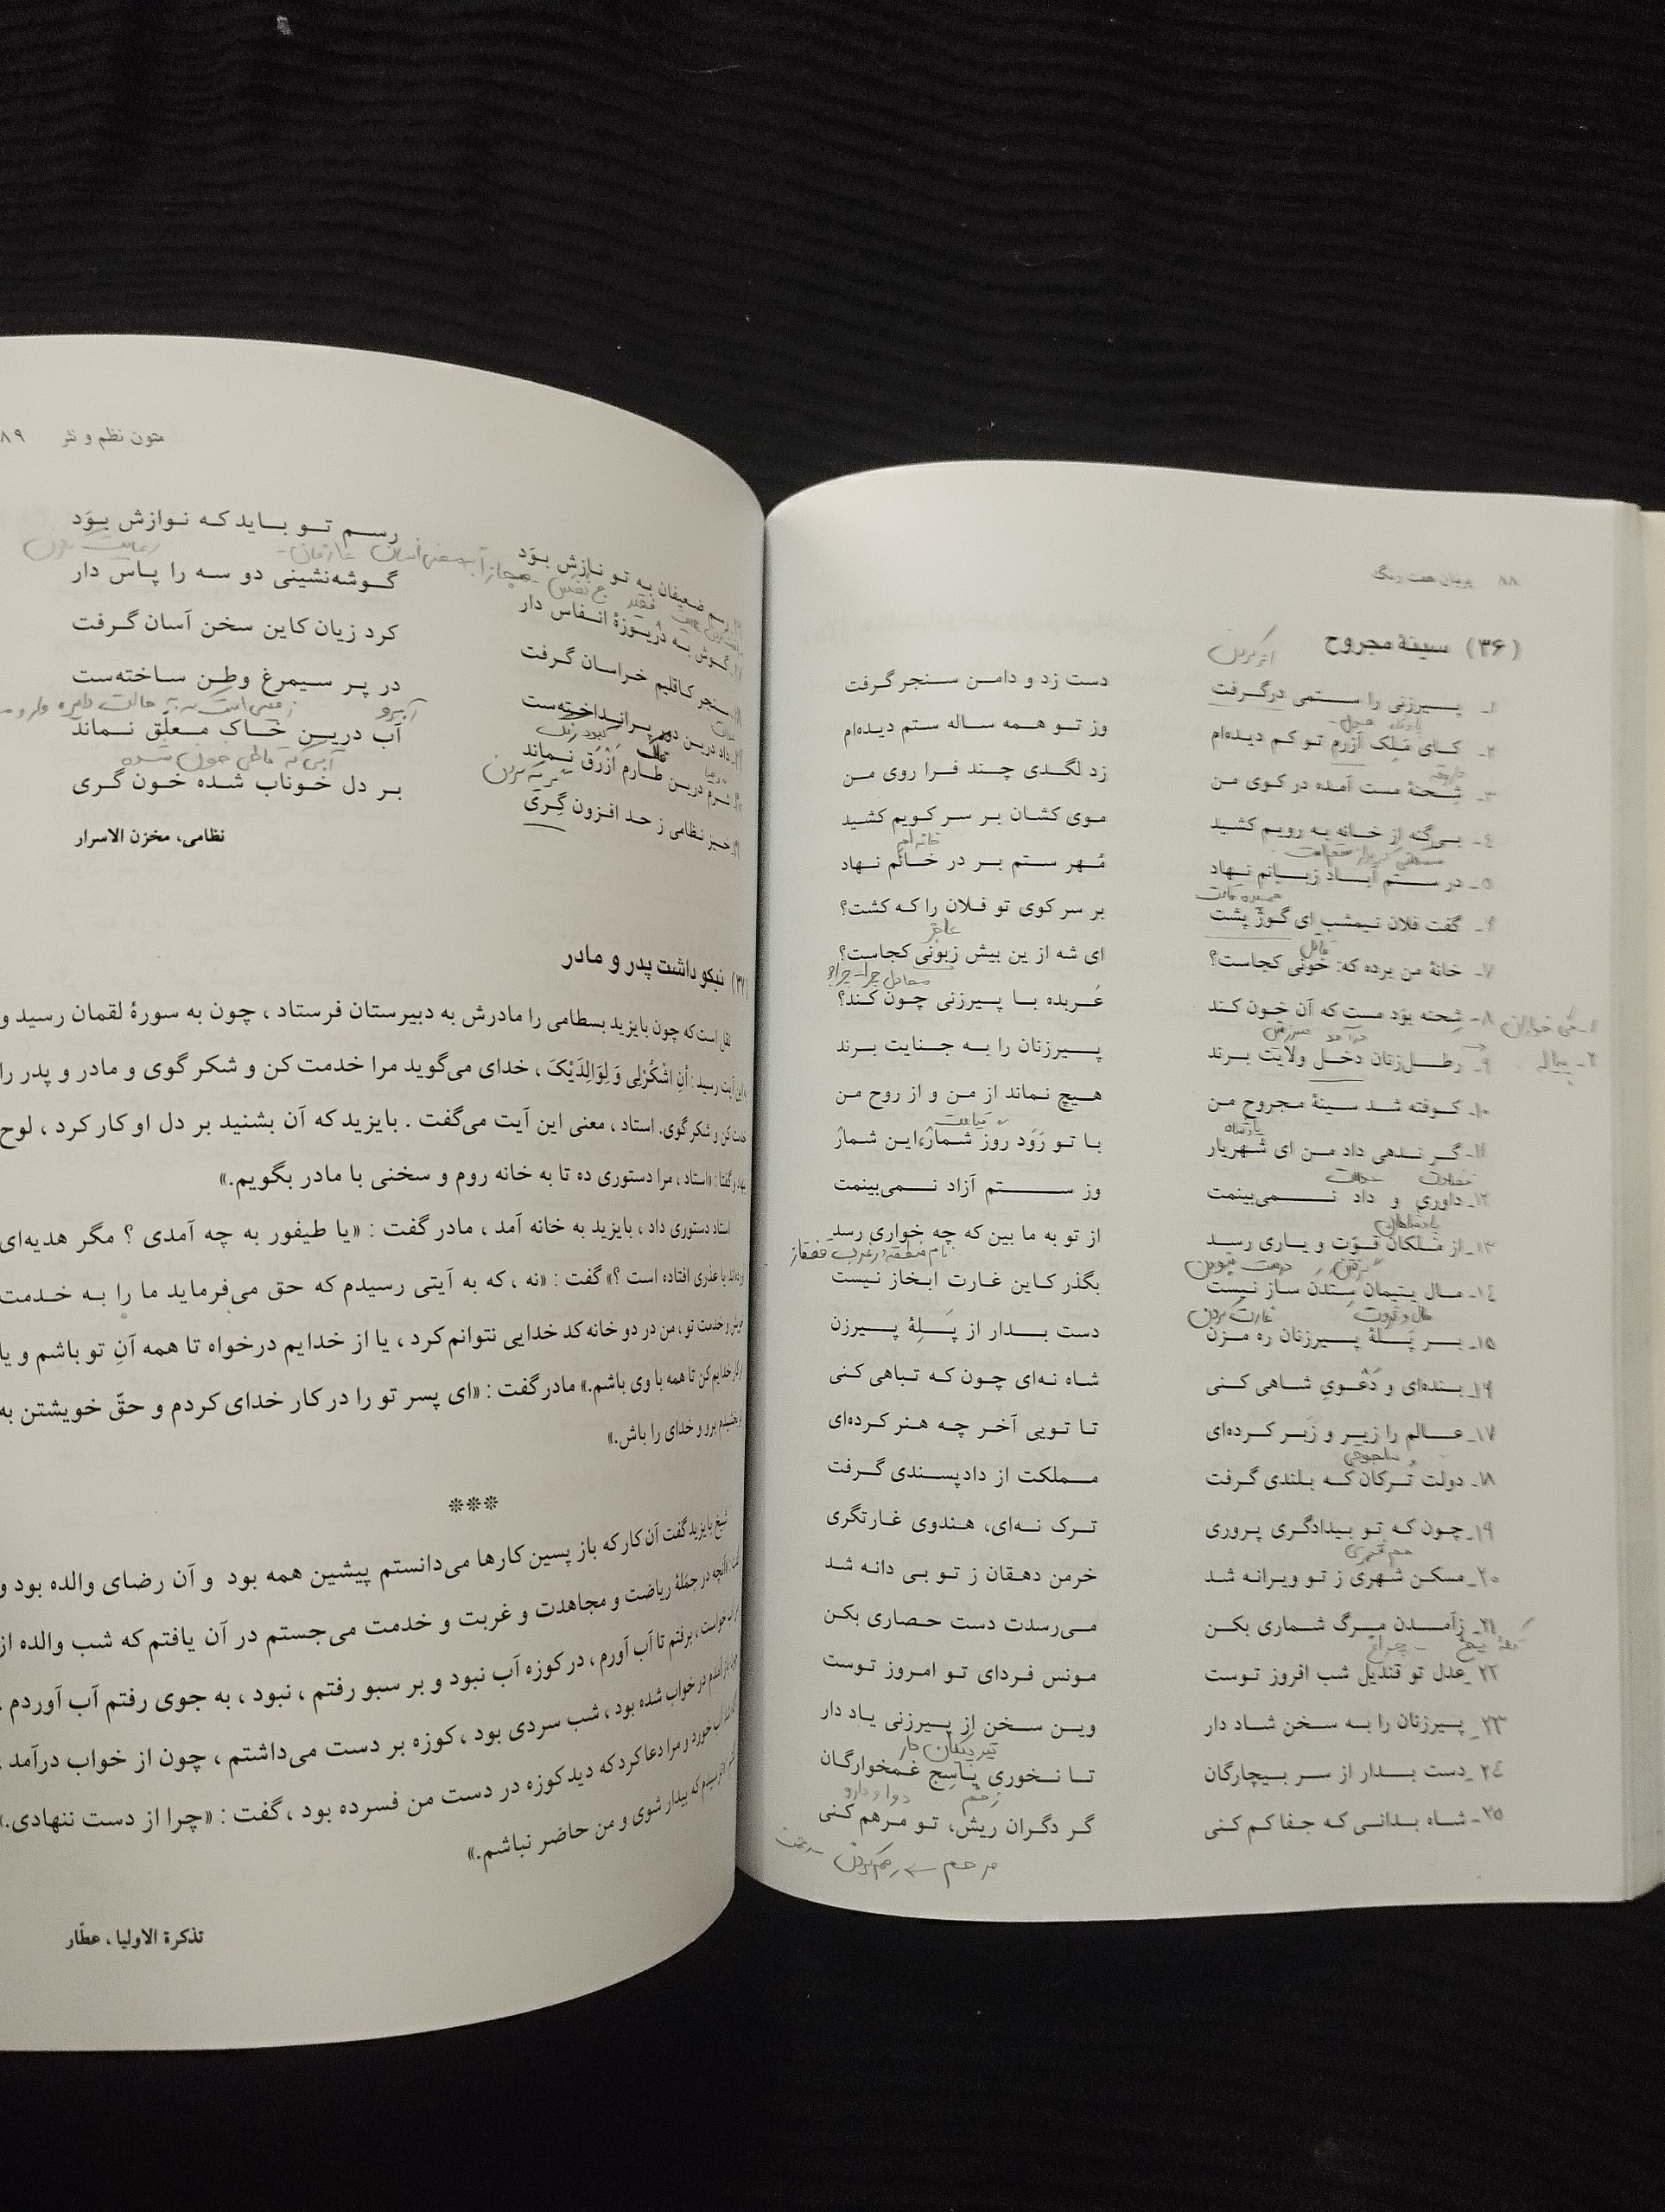 ۸۸ پرنیان هفت رنگ
(۳۶) سینهٔ مجروح
اثر کردن
۱ـ پیرزنی را ستمی درگرفت دست زد و دامن سنجر گرفت
۲ـ کای مَلِک آزرم تو کم دیده‌ام وز تو همه ساله ستم دیده‌ام
داروغه
۳ـ شِحنهٔ مست آمده در کوی من زد لگدی چند فرا روی من
۴ـ بی‌گنه از خانه به رویم کشید موی کشان بر سر کویم کشید
خانه‌ام
۵ـ در ستم آباد زبانم نهاد مُهر ستم بر در خانم نهاد
خمیده قامت
۶ـ گفت فلان نیمشب ای گوژ پشت بر سر کوی تو فلان را که کشت؟
قاتل
عاجز
۷ـ خانهٔ من برده که: خونی کجاست؟ ای شه از ین بیش زبونی کجاست؟
۸ـ شِحنه بوَد مست که آن خون کند عَربده با پیرزنی چون کند؟
۹ـ رطل‌زنان دخل ولایت برند پیرزنان را به جنایت برند
۱۰ـ کوفته شد سینهٔ مجروح من هیچ نماند از من و از روح من
پادشاه
قیامت
۱۱ـ گر ندهی داد من ای شهریار با تو رَوَد روز شمار، این شمار
عدالت
۱۲ـ داوری و داد نمی‌بینمت وز ستم آزاد نمی‌بینمت
پادشاهان
۱۳ـ از مَلِکان قوّت و یاری رسد از تو به ما بین که چه خواری رسد
گرفتن درست نبودن
نام منطقه در غرب قفقاز
۱۴ـ مال یتیمان سِتدن ساز نیست بگذر کاین غارت ابخاز نیست
مال و ثروت غارت کردن
۱۵ـ بر پَلهٔ پیرزنان ره مزن دست بدار از پَلِهٔ پیرزن
۱۶ـ بنده‌ای و دَعْویِ شاهی کنی شاه نه‌ای چون که تباهی کنی
۱۷ـ عالم را زیر و زَبَر کرده‌ای تا تویی آخر چه هنر کرده‌ای
سلجوقی
۱۸ـ دولت ترکان که بلندی گرفت مملکت از دادپسندی گرفت
۱۹ـ چون که تو بیدادگری پروری ترک نه‌ای، هندوی غارتگری
۲۰ـ مسکن شهری ز تو ویرانه شد خرمن دهقان ز تو بی دانه شد
۲۱ـ زآمدن مرگ شماری بکن می‌رسدت دست حصاری بکن
چراغ
۲۲ـ عدل تو قندیل شب افروز توست مونس فردای تو امروز توست
۲۳ـ پیرزنان را به سخن شاد دار وین سخن از پیرزنی یاد دار
تیر پیکان دار
۲۴ـ دست بدار از سر بیچارگان تا نخوری یاسِج غمخوارگان
زخم دوا و دارو
۲۵ـ شاه بدانی که جفا کم کنی گر دگران ریش، تو مرهم کنی
متون نظم و نثر ۸۹
رسم ضعیفان به تو نازش بوَد رسم تو باید که نوازش بوَد
گوش به دریوزهٔ انفاس دار گوشه‌نشینی دو سه را پاس دار
سنجر کاقلیم خراسان گرفت کرد زیان کاین سخن آسان گرفت
داد درین دور برانداخته‌ست در پر سیمرغ وطن ساخته‌ست
کبود رنگ
آبرو
شرم درین طارم اَزْرَق نماند آب درین خاک معلّق نماند
گریه کردن
خیز نظامی ز حد افزون گِری بر دل خوناب شده خون گری
نظامی، مخزن الاسرار
(۳۷) نیکو داشت پدر و مادر
نقل است که چون بایزید بسطامی را مادرش به دبیرستان فرستاد ، چون به سورهٔ لقمان رسید و
به این آیت رسید : أنِ اشْکُرْلِی وَ لِوَالِدَیْکَ ، خدای می‌گوید مرا خدمت کن و شکر گوی و مادر و پدر را
خدمت کن و شکر گوی. استاد ، معنی این آیت می‌گفت . بایزید که آن بشنید بر دل او کار کرد ، لوح
بنهاد و گفتا : «استاد ، مرا دستوری ده تا به خانه روم و سخنی با مادر بگویم.»
استاد دستوری داد ، بایزید به خانه آمد ، مادر گفت : «یا طیفور به چه آمدی ؟ مگر هدیه‌ای
یا عذری افتاده است ؟» گفت : «نه ، که به آیتی رسیدم که حق می‌فرماید ما را به خدمت
خویش و خدمت تو ، من در دو خانه کد خدایی نتوانم کرد ، یا از خدایم درخواه تا همه آنِ تو باشم و یا
در کار خدایم کن تا همه با وی باشم.» مادر گفت : «ای پسر تو را در کار خدای کردم و حقّ خویشتن به
تو بخشیدم برو و خدای را باش.»
***
شیخ بایزید گفت آن کار که باز پسین کارها می‌دانستم پیشین همه بود و آن رضای والده بود و
گفت : آنچه در جملهٔ ریاضت و مجاهدت و غربت و خدمت می‌جستم در آن یافتم که شب والده از
من آب خواست ، برفتم تا آب آورم ، در کوزه آب نبود و بر سبو رفتم ، نبود ، به جوی رفتم آب آوردم .
چون باز آمدم در خواب شده بود ، شب سردی بود ، کوزه بر دست می‌داشتم ، چون از خواب درآمد .
آب خورد و مرا دعا کرد که دید کوزه در دست من فسرده بود ، گفت : «چرا از دست ننهادی.»
گفتم : ترسیدم که بیدار شوی و من حاضر نباشم.»
تذکرة الاولیا ، عطّار